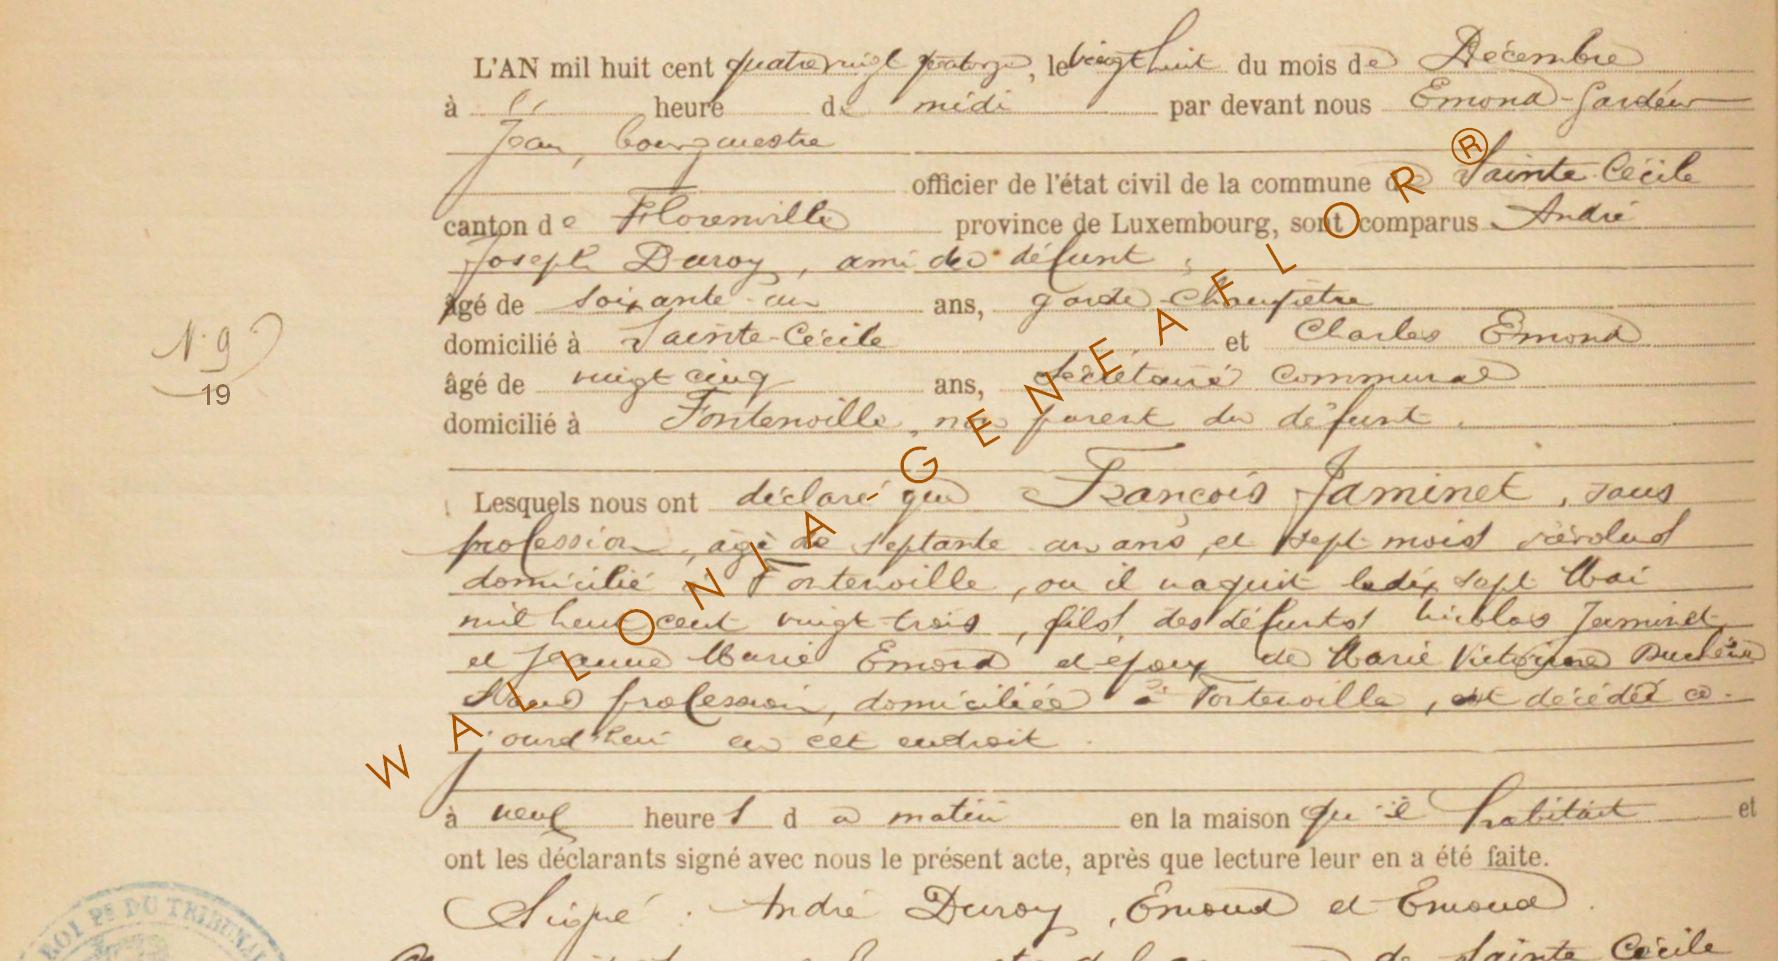 L'AN mil huit cent quatrevingt quatorze, le vingt huit du mois de Décembre
à heure de midi par devant nous Emond-Gardeur
Jean, bourgmestre
officier de l'état civil de la commune de Sainte Cécile
canton de Florenville province de Luxembourg, sont comparus André
Joseph Duroy, ami du défunt,
âgé de soixante-un ans, garde-champêtre
N° 9
domicilié à Sainte-Cécile et Charles Emond
19
âgé de vingt cinq ans, secrétaire communal
domicilié à Fontenoille, non parent du défunt.
Lesquels nous ont déclaré que François Jaminet, sans
profession, âgé de septante un ans et sept mois révolus
domicilié à Fontenoille, ou il naquit le dix sept Mai
mil huit cent vingt-trois, fils des défunts Nicolas Jaminet
et Jeanne Marie Emond et époux de Marie Victorine
sans profession, domiciliée à Fontenoille, est décédé ce-
jourd'hui en cet endroit.
à neuf heures du matin en la maison qu'il habitait et
ont les déclarants signé avec nous le présent acte, après que lecture leur en a été faite.
Signé. André Duroy, Emond et Emond.
ROI Pˢ DU TRIBUNAL
de Sainte Cécile
WALLONIA-GENEAFLOR®